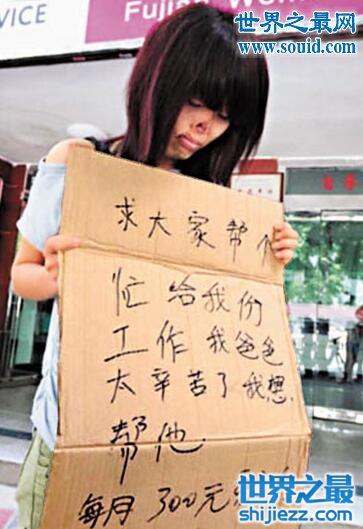 VICE
Fujian Wom
世界之最网
www.souid.com
求大家帮个
忙给我份
工作我爸爸
太辛苦了我想
帮他
每月300元
世界之最
shijiezz.com